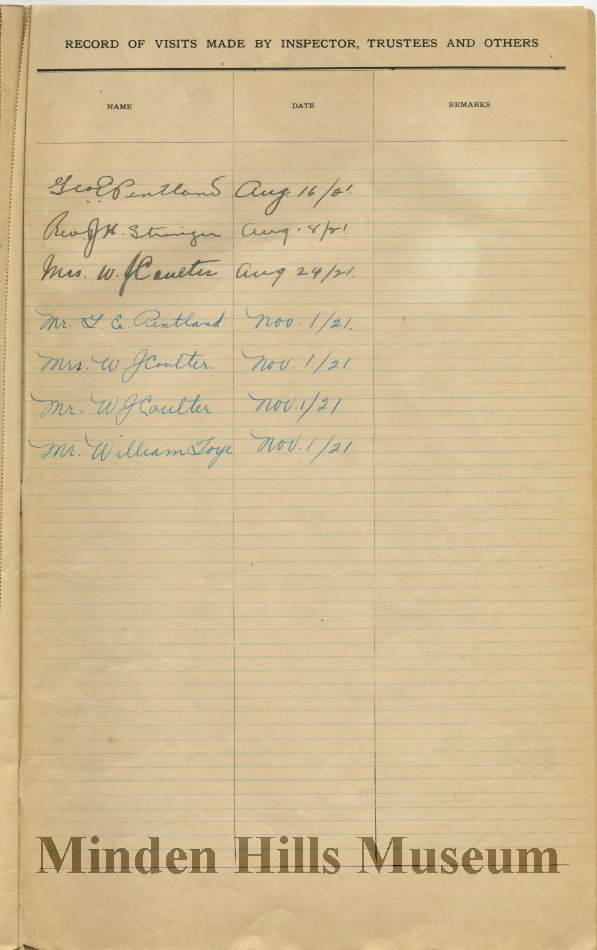 RECORD OF VISITS MADE BY INSPECTOR, TRUSTEES AND OTHERS
NAME DATE REMARKS
Geo E Pentland Aug 16/21.
Rev. J H. Stringer Aug. 8/21.
Mrs. W. J Coulter Aug 24/21.
Mr. G. E. Pentland. Nov. 1/21.
Mrs. W. J Coulter. Nov. 1/21.
Mr. W J Coulter Nov. 1/21
Mr. William Toye Nov. 1/21.
Minden Hills Museum